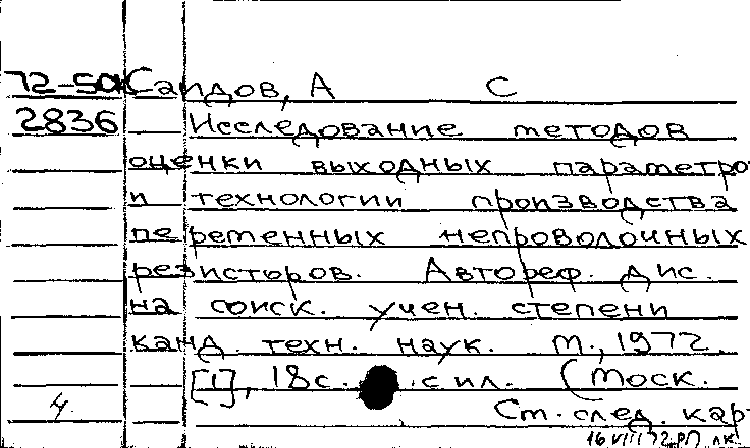 72-50к Саидов, А С
2836 Исследование методов
оценки выходных параметро
и технологии производства
переменных непроволочных
резисторов. Автореф. дис.
на соиск. учен. степени
канд. техн. наук. М., 1972.
[1], 18 с. с ил. (Моск.
4. См. след. кар
16 VIII 72 РП лк!